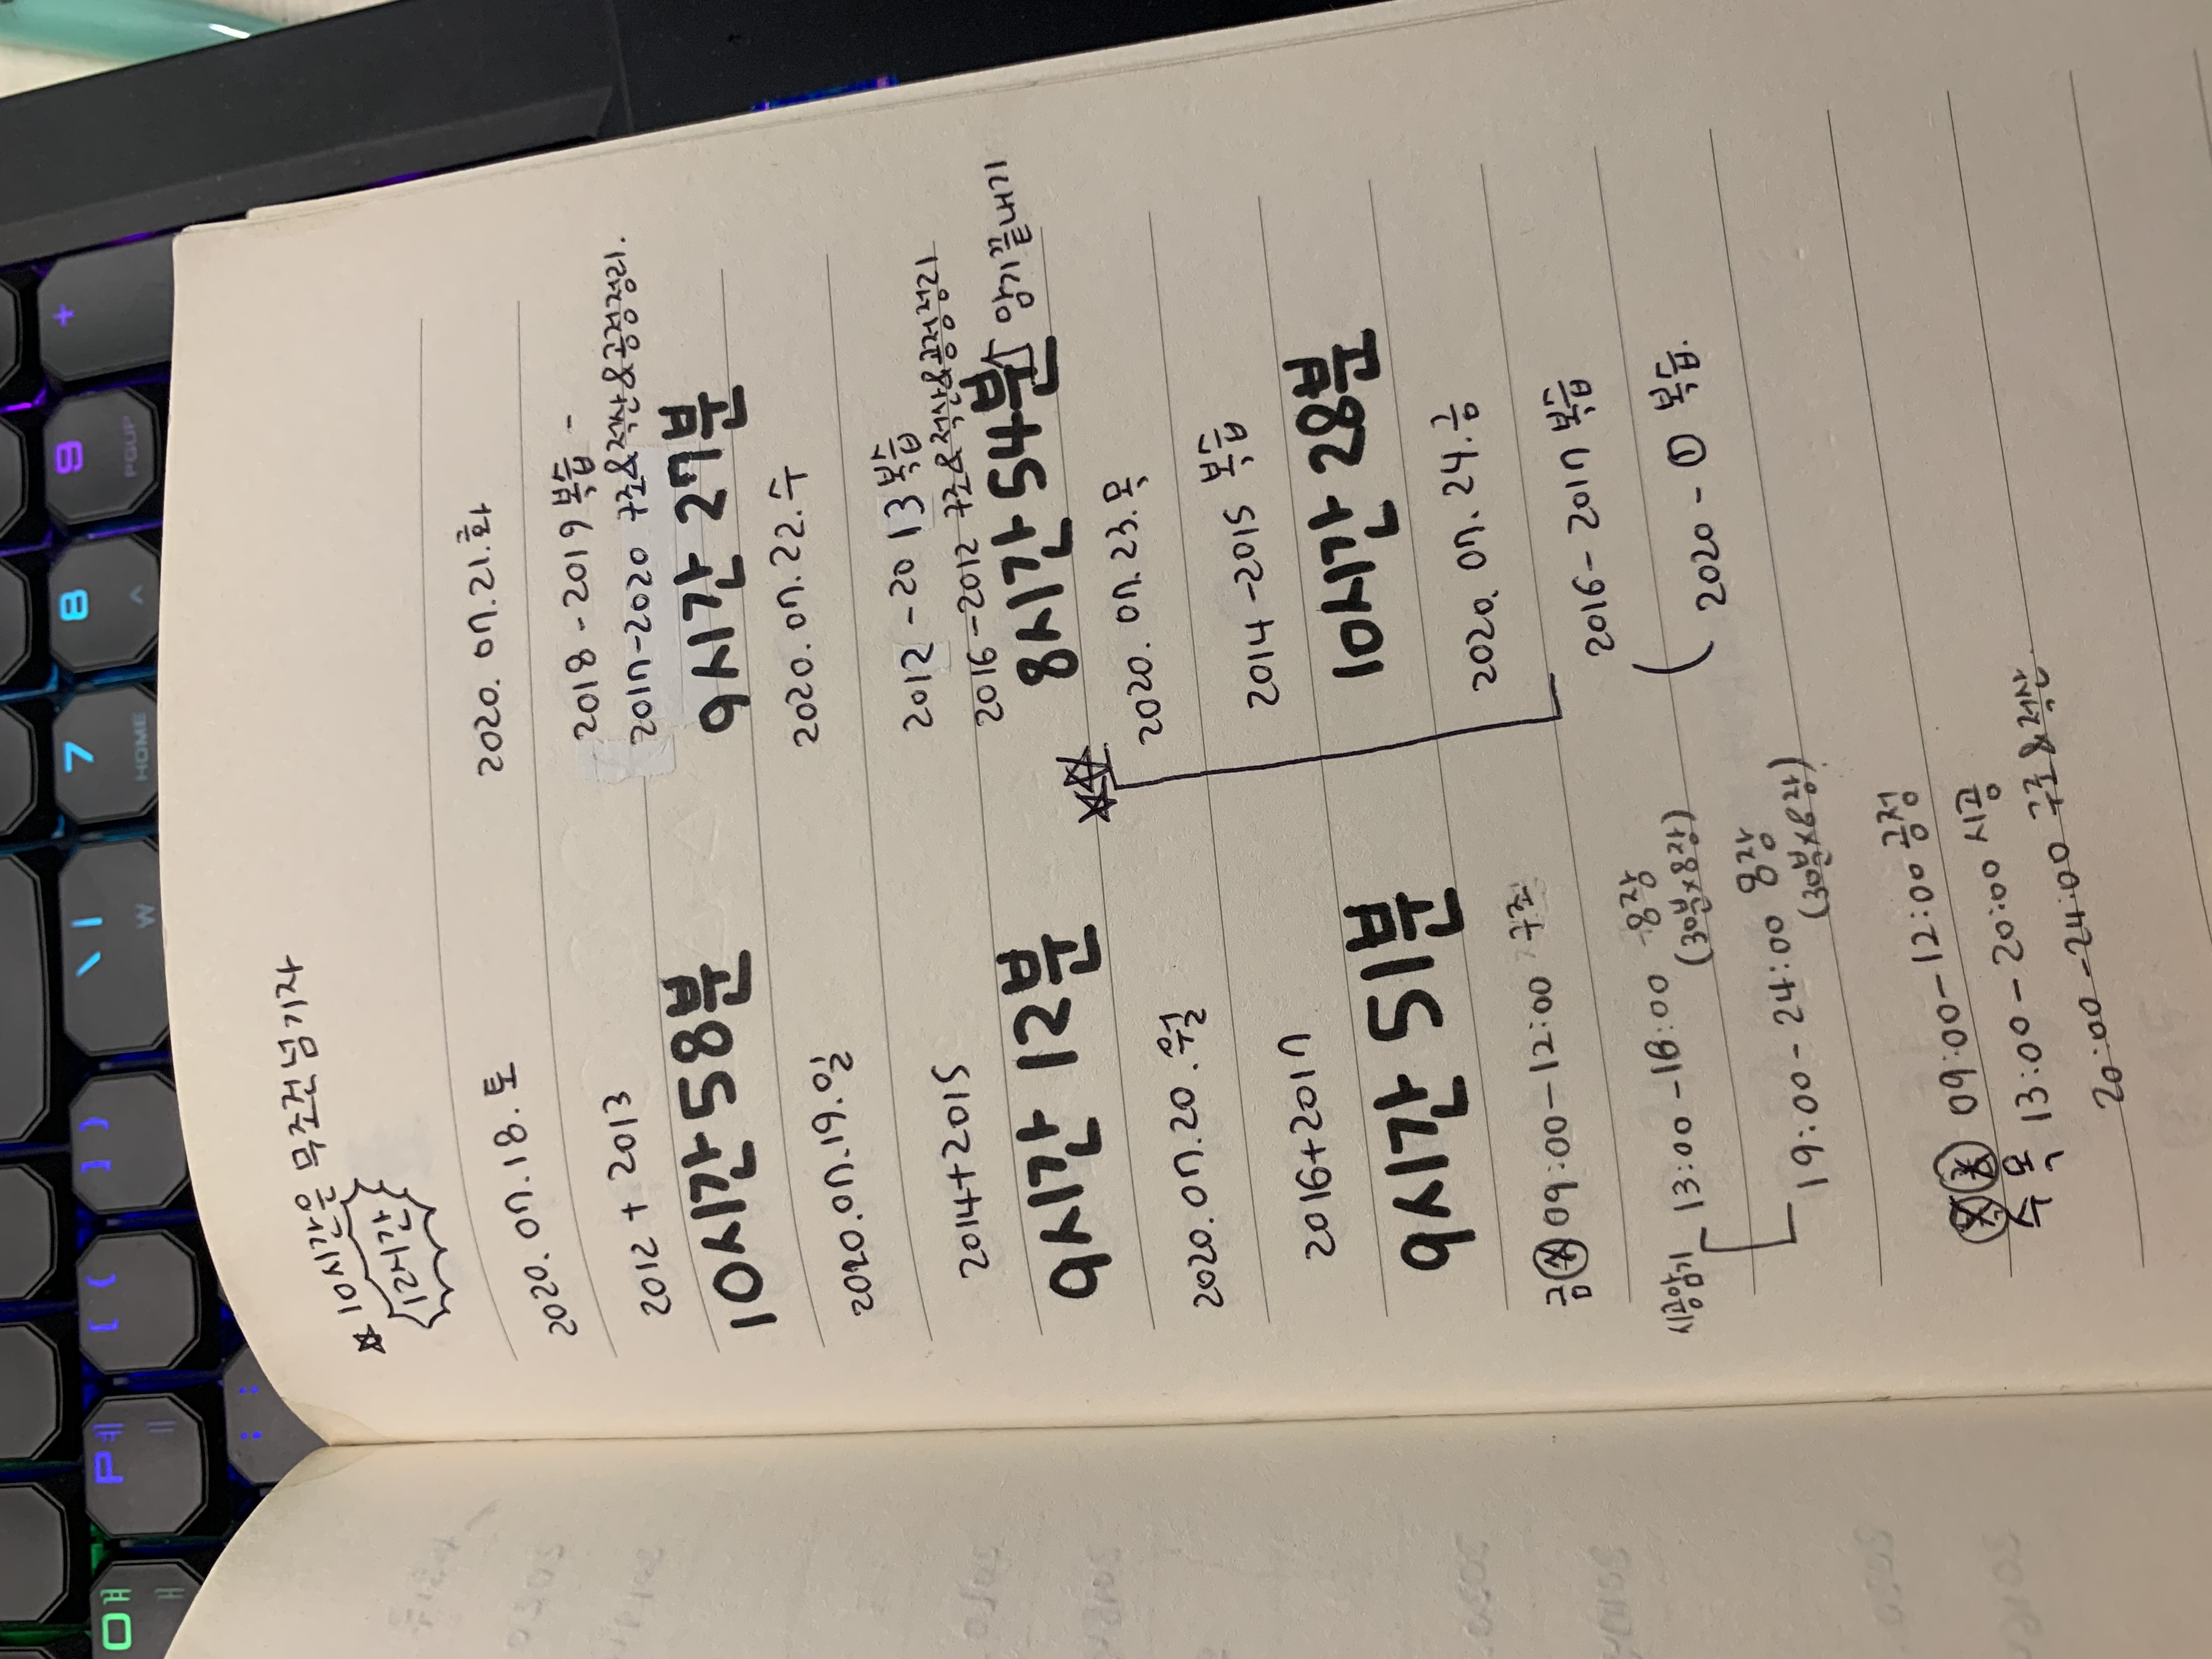 ☆ 10시간은 무조건넘기자
(12시간)
2020. 07. 18. 토
2012 + 2013
10시간 58분
2020. 07. 19. 일
2014+2015
9시간 12분
2020. 07. 20. 월
2016+2017
9시간 51분
금 09:00-12:00 구조
시공암기 13:00-18:00 8장
(30분x8장)
19:00-24:00 8장
(30분x8장)
09:00-12:00 공정
수목 13:00-20:00 시공
20:00-24:00 구조&적산
2020. 07. 21. 화
2018-2019 복습 -
2017-2020 구조&적산&공정정리.
9시간 27분
2020. 07. 22. 수
2012-2013 복습
2016-2012 구조&적산&공정정리
8시간 54분 암기끝내기
☆☆
2020. 07. 23. 목
2014-2015 복습
10시간 28분
2020. 07. 24. 금
2016-2017 복습
( 2020 - ① 복습.
+
9
PGUP
8
^
7
HOME
\ |
W
] }
[ {
: ;
P
ㅔ
ㅖ
O
ㅐ
ㅒ